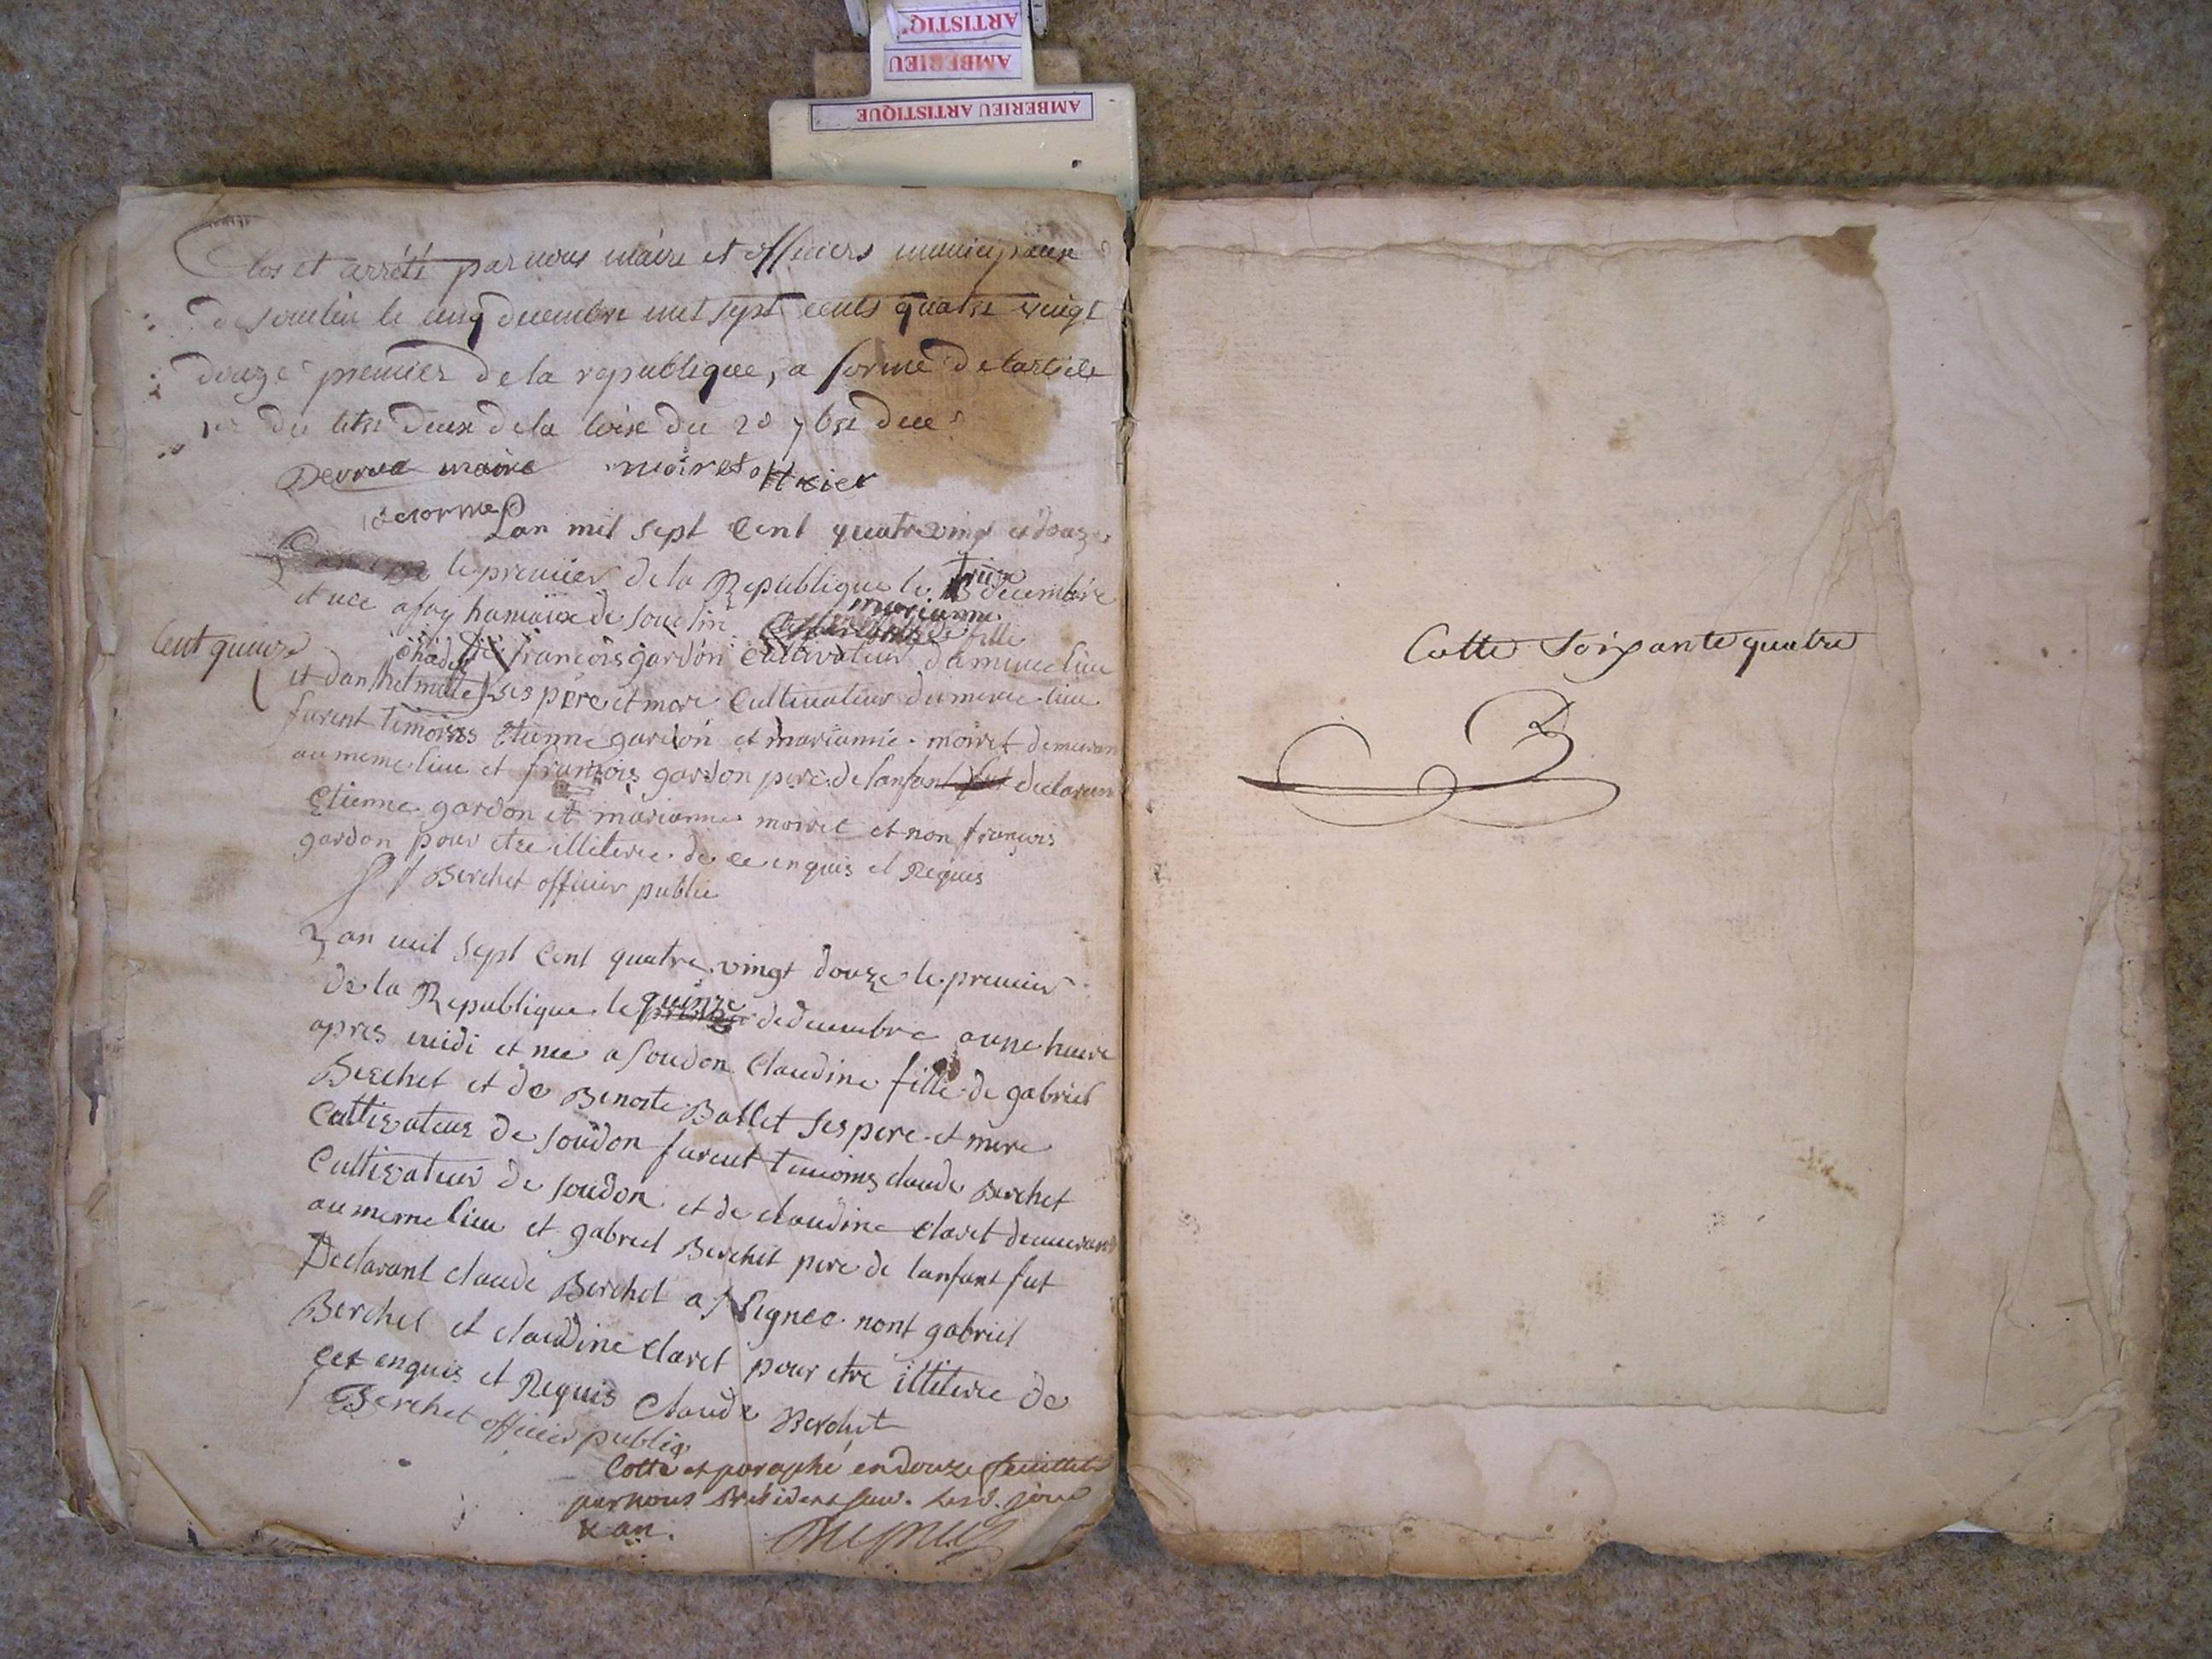 ARTISTIQ'
AMBERIEU
AMBERIEU ARTISTIQUE
Clos et arrété par nous maire et officiers municipaux
de Souclin le cinq decembre mil sept cents quatre vingt
douze premier de la republique, a forme de larticle
1er du titre deux de la loix du 20 7bre due
maire moiret
Lan mil sept Cent quatre vingt et douze
le premier de la Republique le trize decembre
et nee a fay hamaix de Souclin marianne fille
Cent quinze
de françois gardon Cultivateur du meme lieu
et dan ses pere et mere Cultivateur du meme lieu
furent temoins Etienne gardon et marianne moiret demeuran
au meme lieu et françois gardon pere de lanfant fut declarant
Etienne gardon et marianne moiret et non françois
gardon pour etre illiterée de ce enquis et Requis
Berchet officier public
Lan mil sept Cent quatre vingt douze le premier
de la Republique le quinze de decembre a une heure
apres midi et nee a Soudon Claudine fille de gabriel
Berchet et de Benoite Ballet ses pere et mere
Cultivateur de Soudon furent temoins claude Berchet
Cultivateur de Soudon et de claudine Claret demeurant
au meme lieu et gabriel Berchet pere de lanfant fut
Declarant claude Berchet a signee nont gabriel
Berchet et claudine Claret pour etre illiterée de
cet enquis et Requis Claude Berchet
Berchet officier public
Cotté et paraphé en douze feuillets
par nous Président jour
& an.
Cotte Soixante quatre